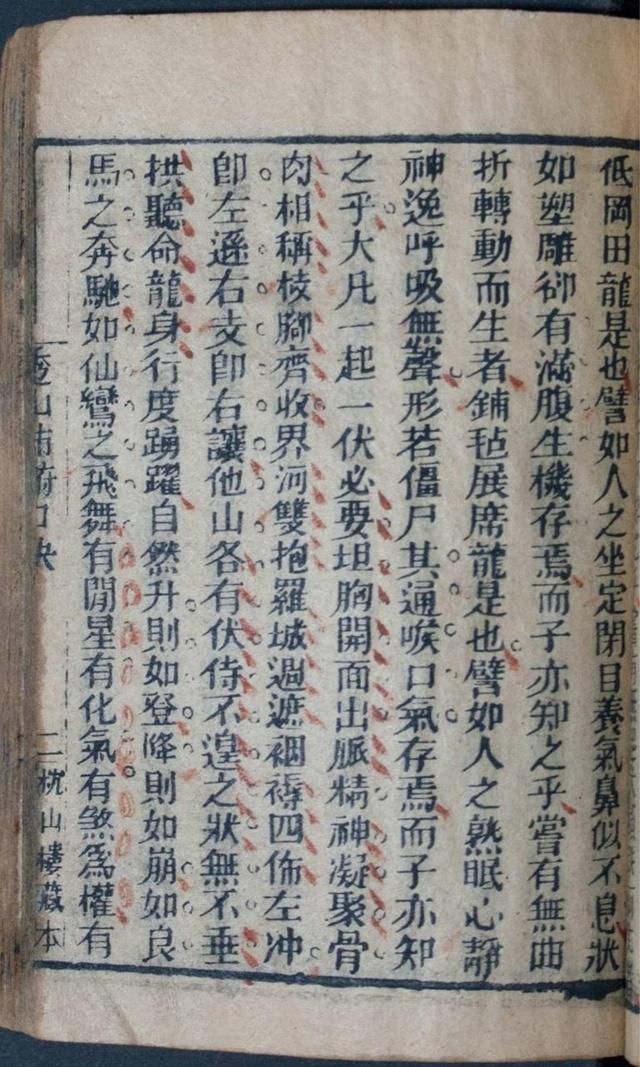 低岡田龍是也譬如人之坐定閉目養氣鼻似不息狀
如塑雕卻有滿腹生機存焉而子亦知之乎嘗有無曲
折轉動而生者鋪毡展席龍是也譬如人之熟眠心靜
神逸呼吸無聲形若僵尸其通喉口氣存焉而子亦知
之乎大凡一起一伏必要坦胸開面出脈精神凝聚骨
肉相稱枝腳齊收界河雙抱羅城過遮裀褥四佈左冲
卽左遜右支卽右讓他山各有伏侍不遑之狀無不垂
拱聽命龍身行度踴躍自然升則如登降則如崩如良
馬之奔馳如仙鸞之飛舞有閒星有化氣有煞爲權有
山 口
二 枕山樓藏本